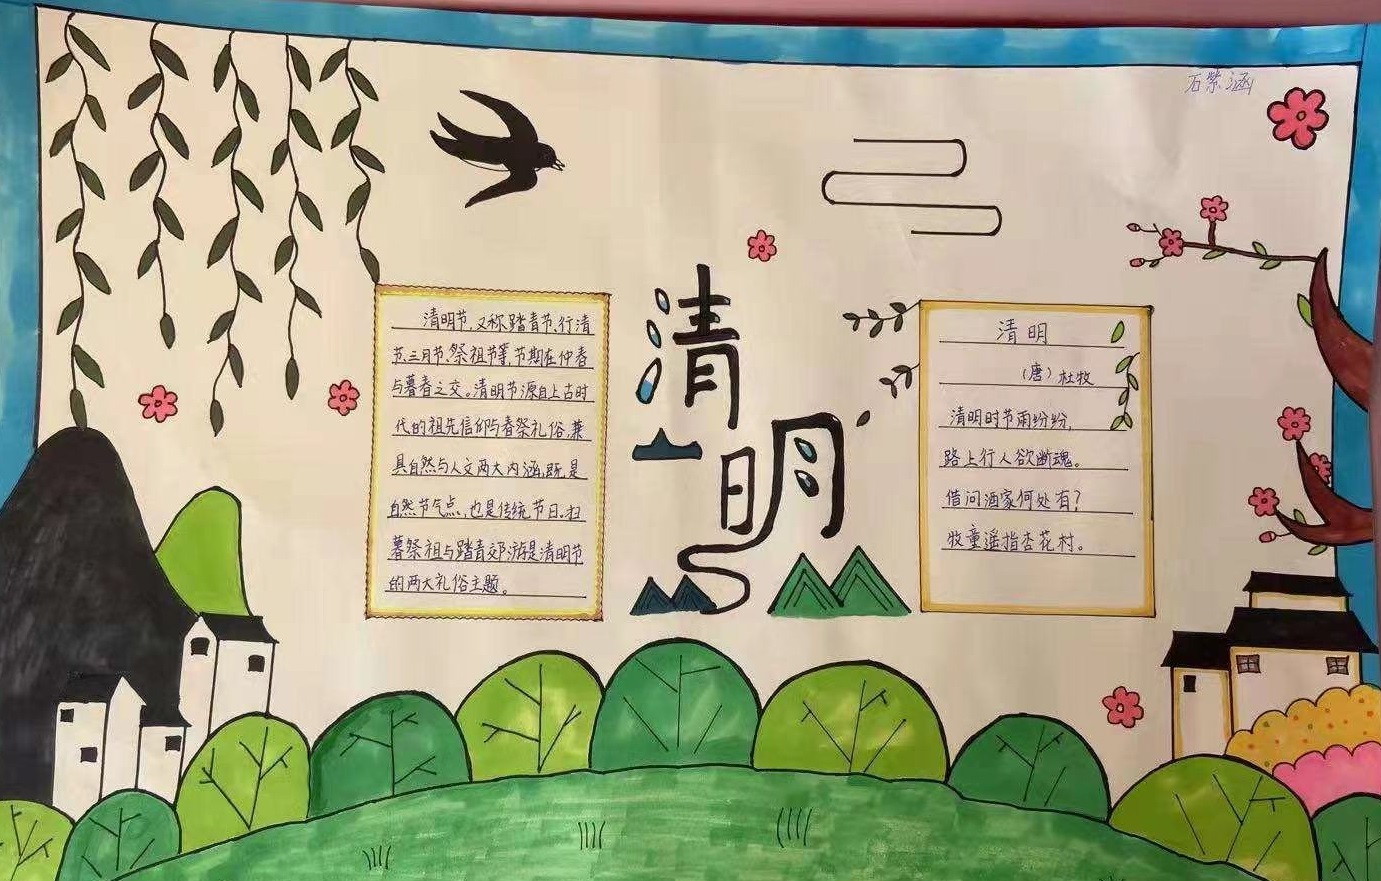 石紫涵
清明节，又称踏青节、行清
节、三月节、祭祖节等，节期在仲春
与暮春之交。清明节源自上古时
代的祖先信仰与春祭礼俗，兼
具自然与人文两大内涵，既是
自然节气点，也是传统节日。扫
暮祭祖与踏青郊游是清明节
的两大礼俗主题。
清明
清明
（唐）杜牧
清明时节雨纷纷，
路上行人欲断魂。
借问酒家何处有？
牧童遥指杏花村。